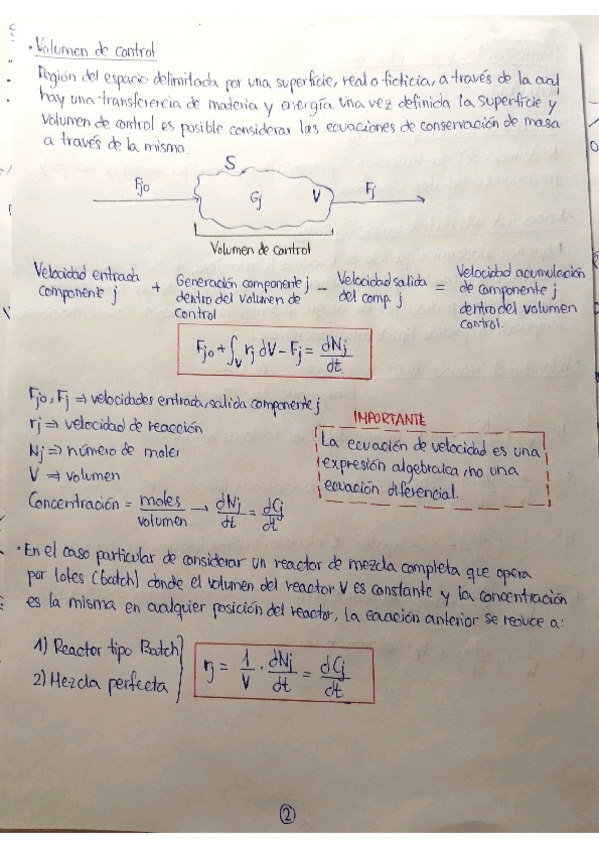 · Volumen de control
Región del espacio delimitada por una superficie, real o ficticia, a través de la cual
hay una transferencia de materia y energía una vez definida la superficie y
volumen de control es posible considerar las ecuaciones de conservación de masa
a través de la misma.
S
Fj0 Gj V Fj
Volumen de control
Velocidad entrada componente j + Generación componente j dentro del volumen de control − Velocidad salida del comp. j = Velocidad acumulación de componente j dentro del volumen control.
Fj0 + ∫V rj dV − Fj = dNj/dt
Fj0, Fj ⇒ velocidades entrada, salida componente j
rj ⇒ velocidad de reacción
Nj ⇒ número de moles
V ⇒ volumen
Concentración = moles/volumen → dNj/dt = dCj/dt
IMPORTANTE
La ecuación de velocidad es una
expresión algebraica, no una
ecuación diferencial.
· En el caso particular de considerar un reactor de mezcla completa que opera
por lotes (batch) donde el volumen del reactor V es constante y la concentración
es la misma en cualquier posición del reactor, la ecuación anterior se reduce a:
1) Reactor tipo Batch
2) Mezcla perfecta
rj = 1/V · dNj/dt = dCj/dt
2